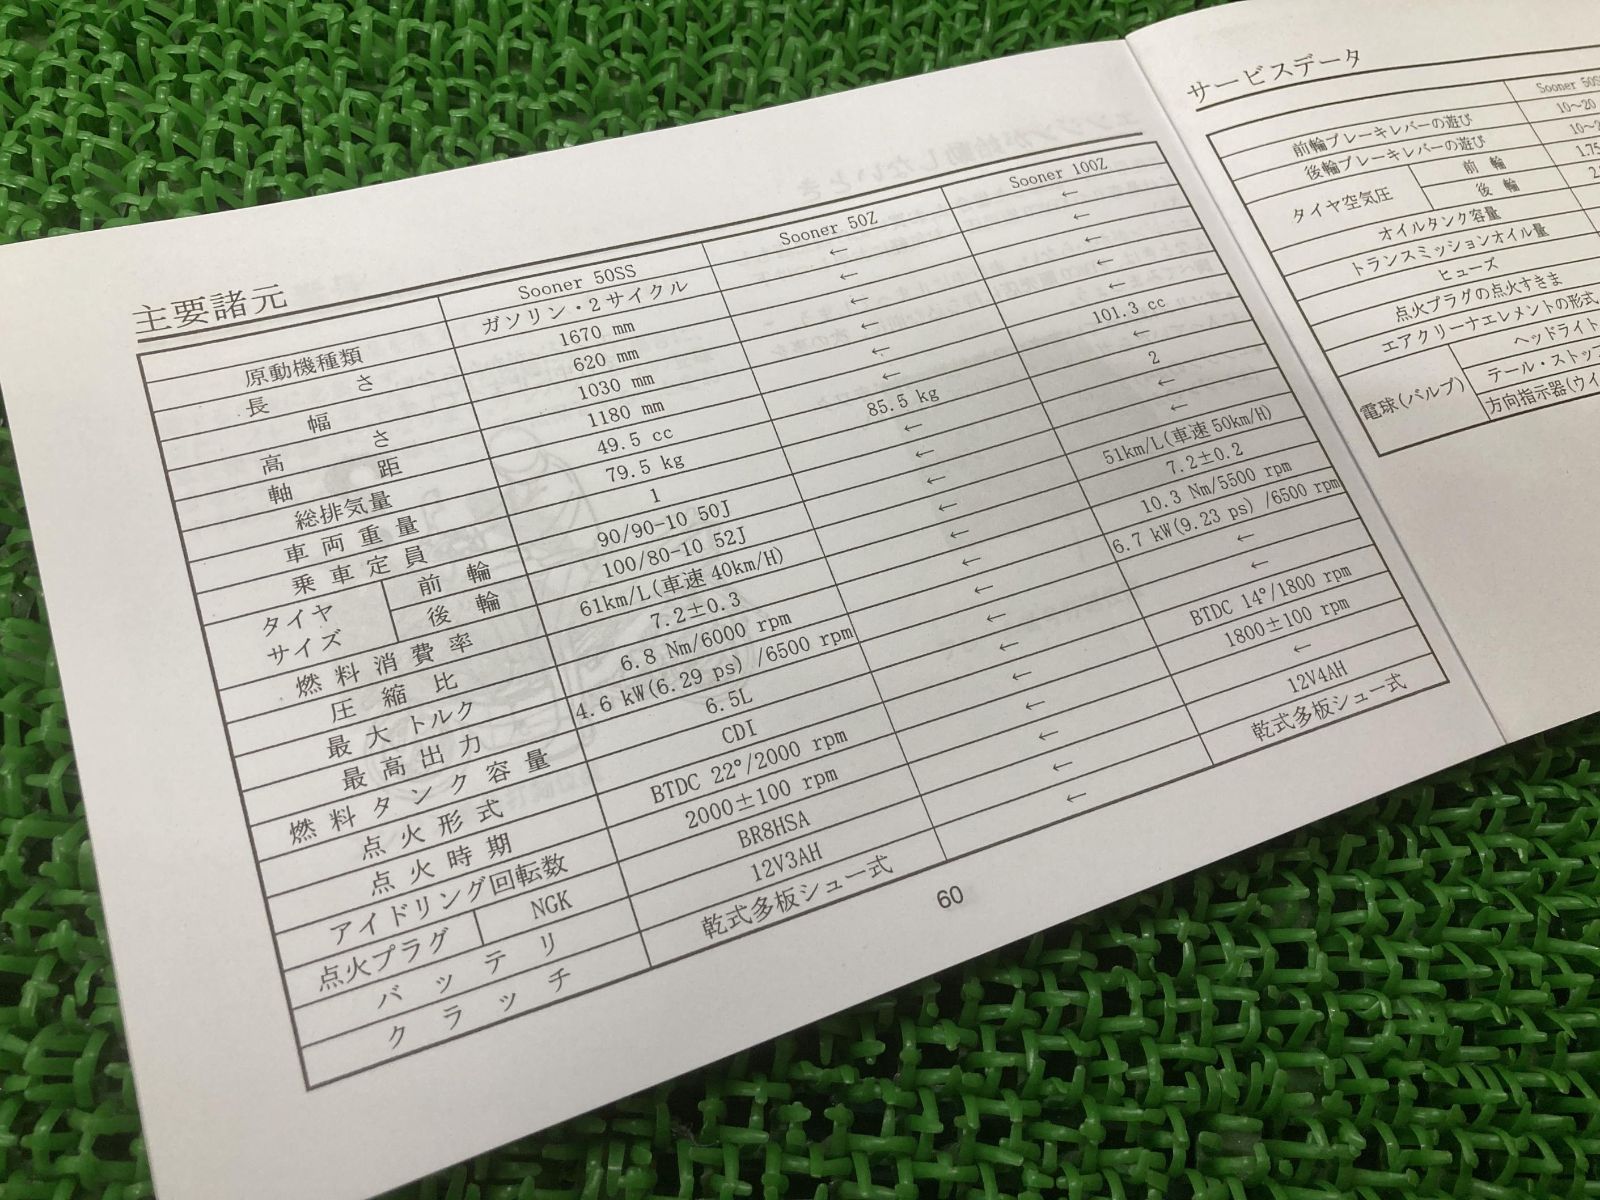 主要諸元
Sooner 50SS Sooner 50Z Sooner 100Z
原動機種類 ガソリン・2サイクル ← ←
長さ 1670 mm ← ←
幅 620 mm ← ←
高さ 1030 mm ← ←
軸距 1180 mm ← ←
総排気量 49.5 cc ← 101.3 cc
車両重量 79.5 kg 85.5 kg
乗車定員 1 ← 2
タイヤサイズ 前輪 90/90-10 50J ← ←
後輪 100/80-10 52J ← ←
燃料消費率 61km/L(車速40km/H) ← 51km/L(車速50km/H)
圧縮比 7.2±0.3 ← 7.2±0.2
最大トルク 6.8 Nm/6000 rpm ← 10.3 Nm/5500 rpm
最高出力 4.6 kW(6.29 ps) /6500 rpm ← 6.7 kW(9.23 ps) /6500 rpm
燃料タンク容量 6.5L ← ←
点火形式 CDI ← ←
点火時期 BTDC 22°/2000 rpm ← BTDC 14°/1800 rpm
アイドリング回転数 2000±100 rpm ← 1800±100 rpm
点火プラグ NGK BR8HSA ← ←
バッテリ 12V3AH ← 12V4AH
クラッチ 乾式多板シュー式 ← 乾式多板シュー式
60
サービスデータ
Sooner 50S
前輪ブレーキレバーの遊び 10～20
後輪ブレーキレバーの遊び 10～2
タイヤ空気圧 前輪 1.75
後輪
オイルタンク容量
トランスミッションオイル量
ヒューズ
点火プラグの点火すきま
エアクリーナエレメントの形式
電球(バルブ) ヘッドライト
テール・ストップ
方向指示器(ウイ